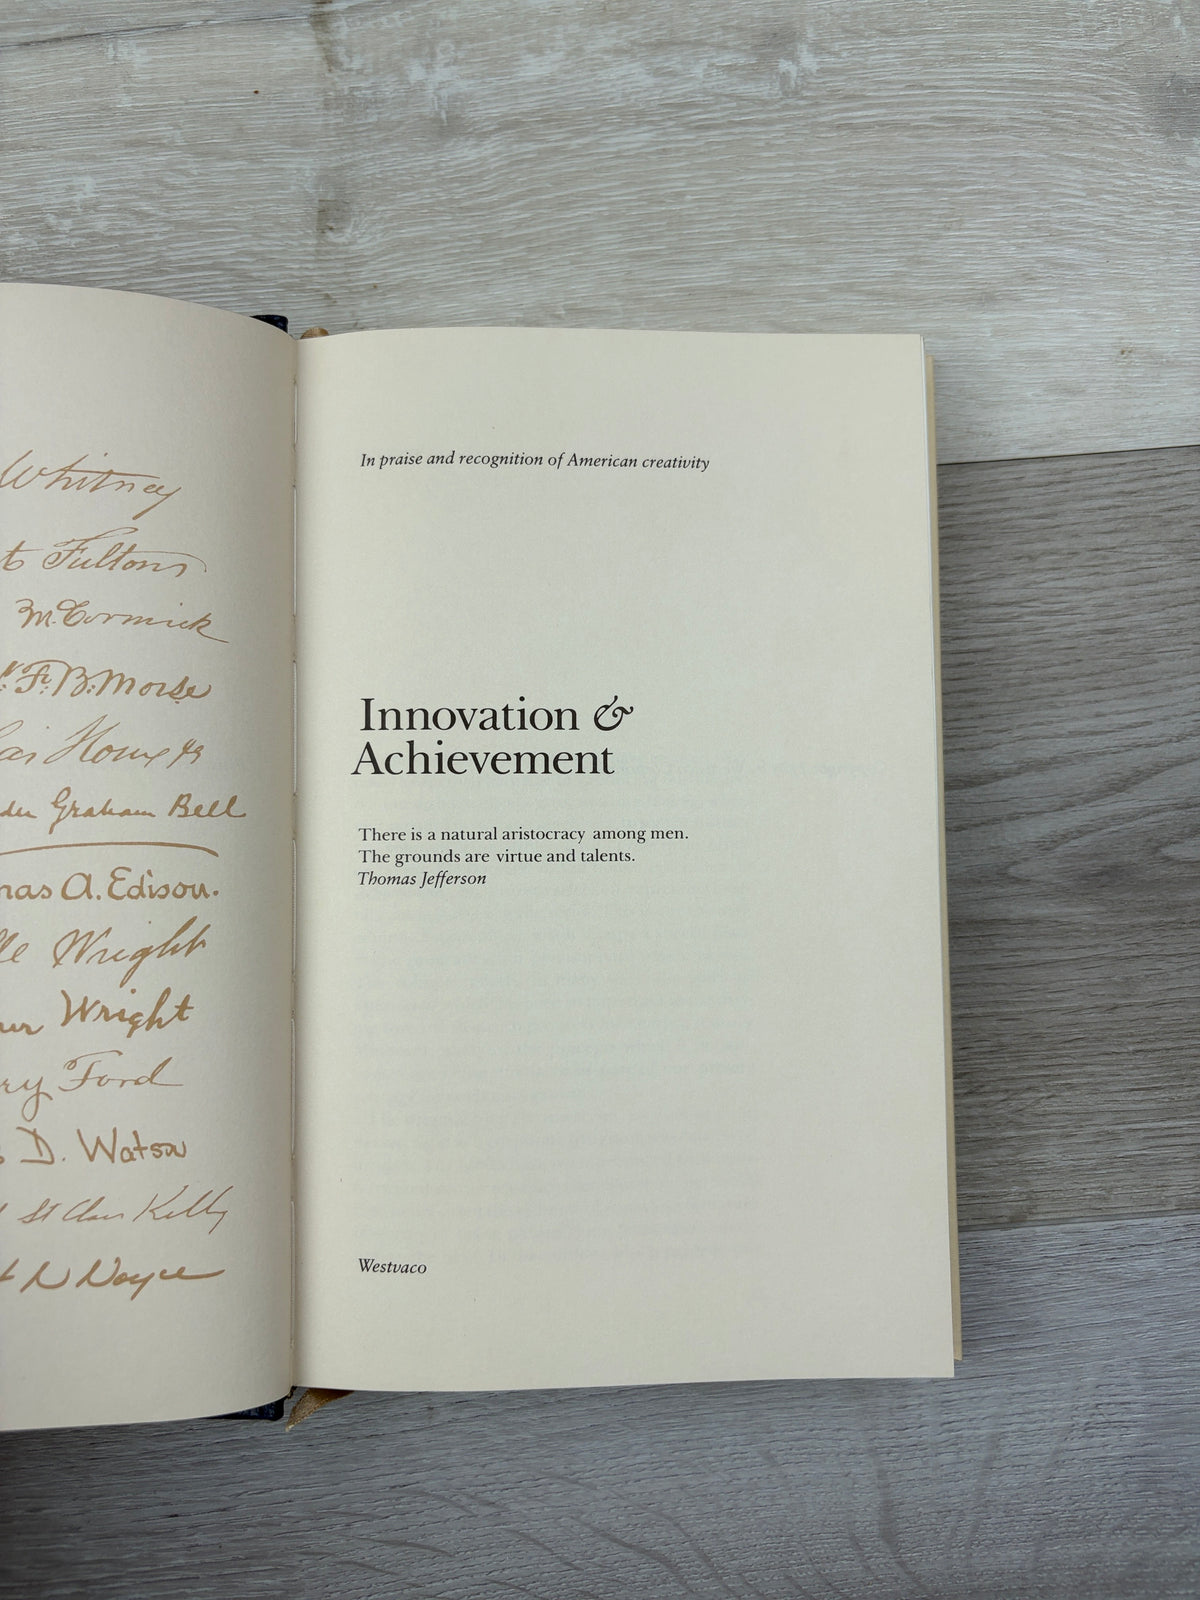 Whitney
Fulton
McCormick
F. B. Morse
Howe Jr
Graham Bell
A. Edison.
Wright
Wright
Ford
D. Watson
St Clair Kilby
N Noyce
In praise and recognition of American creativity
Innovation &
Achievement
There is a natural aristocracy among men.
The grounds are virtue and talents.
Thomas Jefferson
Westvaco